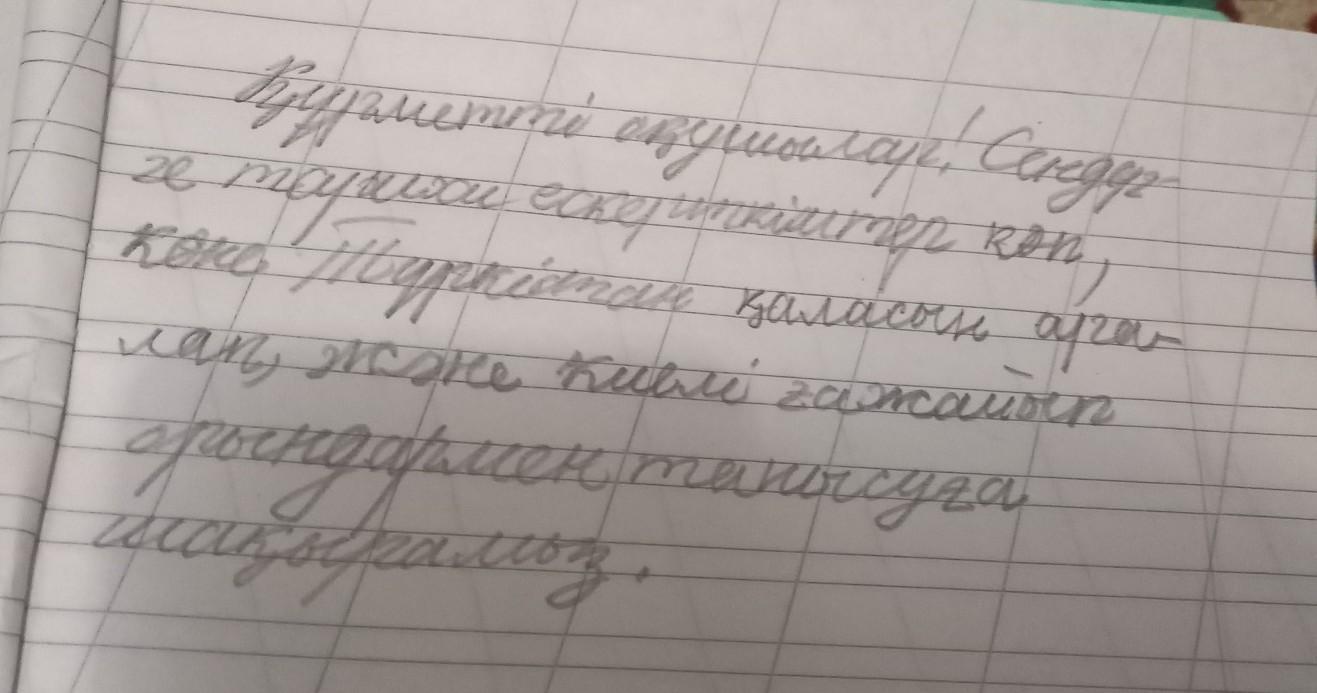 Құрметті оқушылар! Сендер-
ге тарихи ескерткіштер көп,
көне Түркістан қаласын ара-
лап, және киелі ғажайып
орындармен танысуға
шақырамыз.